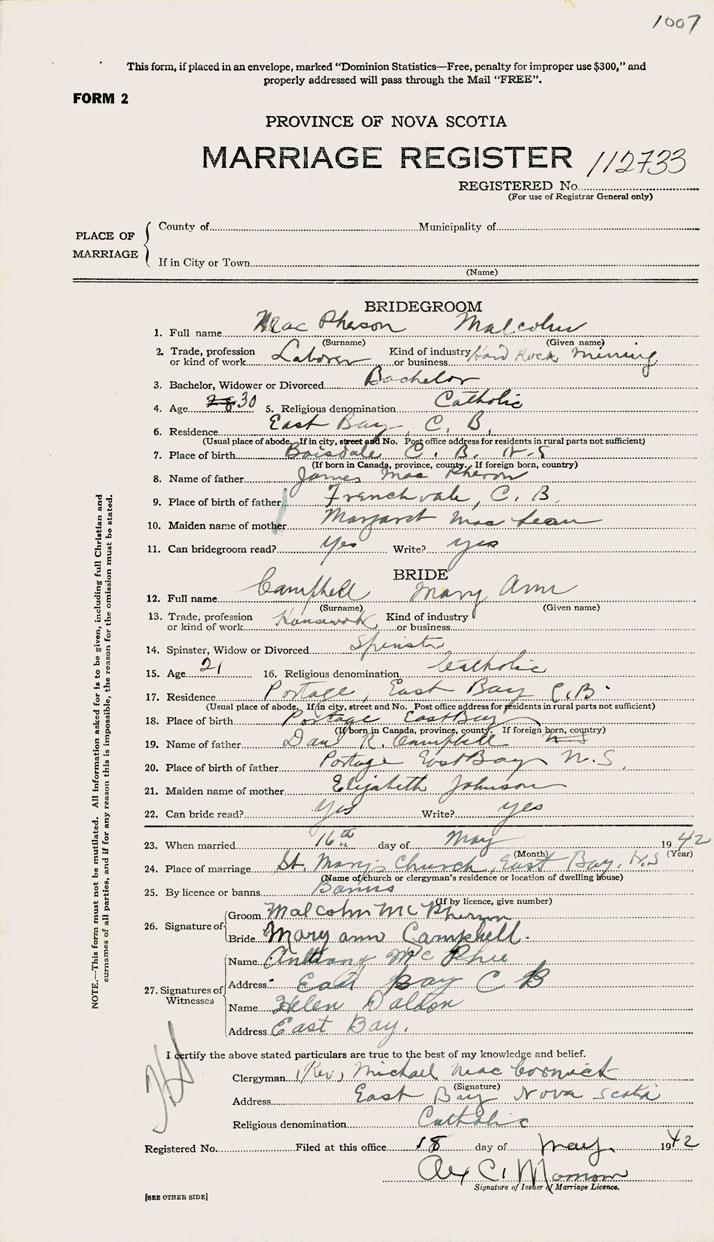 1007
This form, if placed in an envelope, marked "Dominion Statistics—Free, penalty for improper use $300," and
properly addressed will pass through the Mail "FREE".
FORM 2
PROVINCE OF NOVA SCOTIA
MARRIAGE REGISTER 112733
REGISTERED No.
(For use of Registrar General only)
PLACE OF MARRIAGE
County of Municipality of
If in City or Town
(Name)
BRIDEGROOM
1. Full name Mac Pherson Malcolm
(Surname) (Given name)
2. Trade, profession or kind of work Laborer Kind of industry or business Hard Rock Mining
3. Bachelor, Widower or Divorced Bachelor
4. Age 28 30 5. Religious denomination Catholic
6. Residence East Bay, C. B.
(Usual place of abode. If in city, street and No. Post office address for residents in rural parts not sufficient)
7. Place of birth Boisdale C. B. N. S
(If born in Canada, province, county. If foreign born, country)
8. Name of father James Mac Pherson
9. Place of birth of father Frenchvale, C. B
10. Maiden name of mother Margaret Mac Lean
11. Can bridegroom read? Yes Write? yes
BRIDE
12. Full name Campbell Mary Ann
(Surname) (Given name)
13. Trade, profession or kind of work Housework Kind of industry or business
14. Spinster, Widow or Divorced Spinster
15. Age 21 16. Religious denomination Catholic
17. Residence Portage, East Bay C.B.
(Usual place of abode. If in city, street and No. Post office address for residents in rural parts not sufficient)
18. Place of birth Portage East Bay
(If born in Canada, province, county. If foreign born, country)
19. Name of father Dan R. Campbell N S
20. Place of birth of father Portage East Bay N. S.
21. Maiden name of mother Elizabeth Johnson
22. Can bride read? Yes Write? yes
23. When married 16th day of May 1942
(Month) (Year)
24. Place of marriage St. Mary's Church, East Bay, N.S
(Name of church or clergyman's residence or location of dwelling house)
25. By licence or banns Banns
(If by licence, give number)
26. Signature of
Groom Malcolm McPherson
Bride Mary ann Campbell.
27. Signatures of Witnesses
Name Anthony McPhee
Address East Bay C B
Name Helen Dalton
Address East Bay.
I certify the above stated particulars are true to the best of my knowledge and belief.
Clergyman (Rev) Michael MacCormick
(Signature)
Address East Bay Nova Scotia
Religious denomination Catholic
Registered No. Filed at this office 18 day of May 1942
Alex C.
Signature of Issuer of Marriage Licence.
[SEE OTHER SIDE]
NOTE.—This form must not be mutilated. All information asked for is to be given, including full Christian and
surnames of all parties, and if for any reason this is impossible, the reason for the omission must be stated.